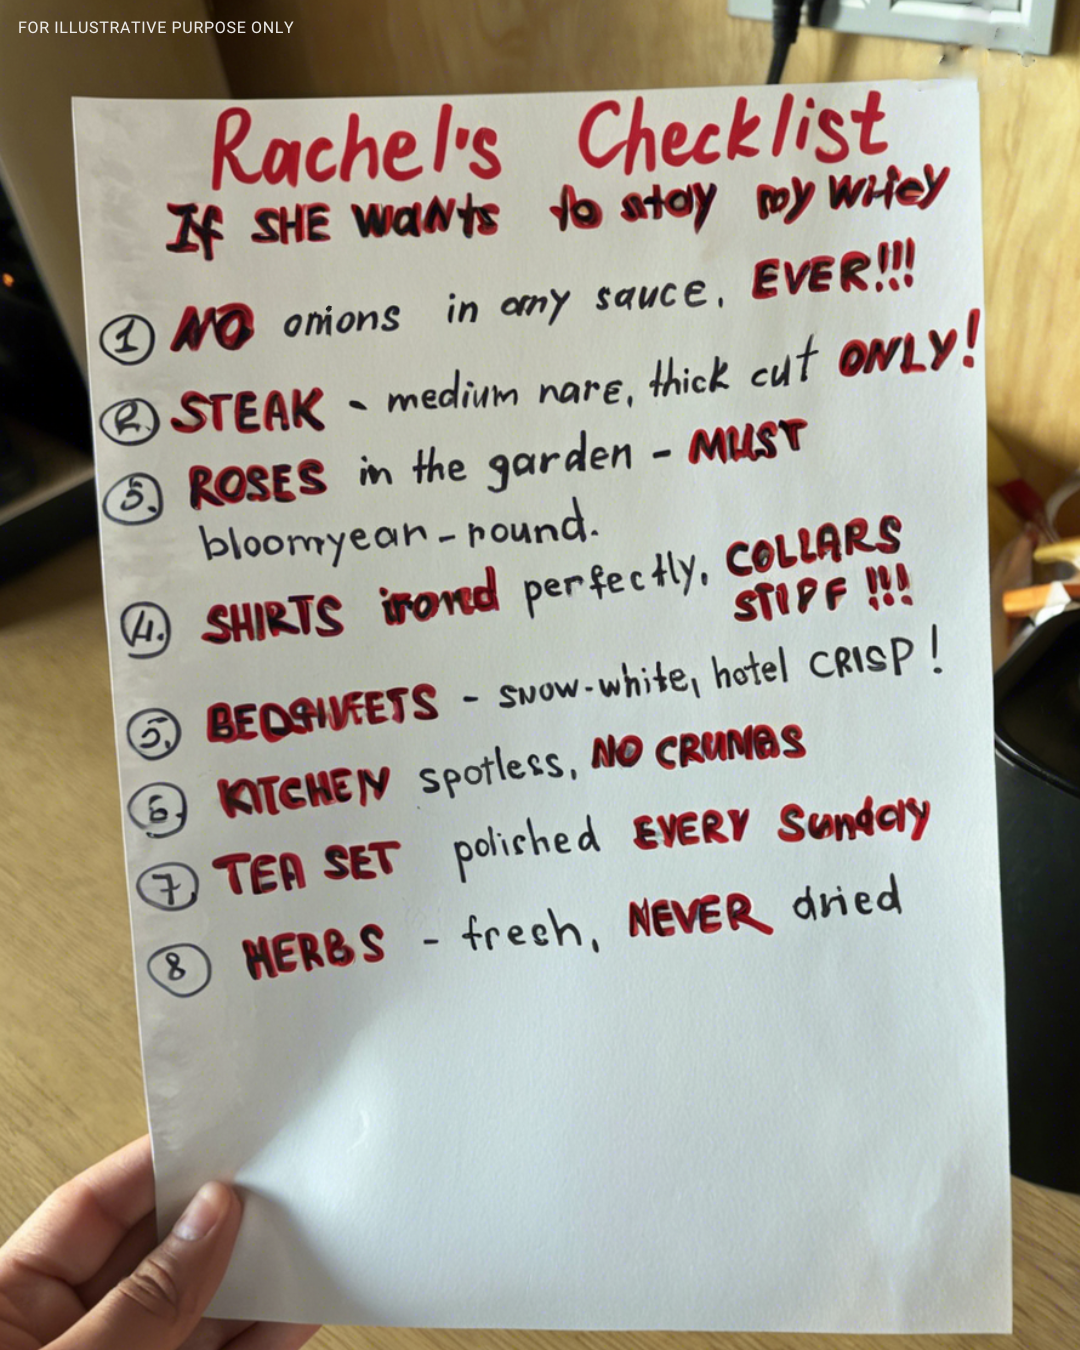 FOR ILLUSTRATIVE PURPOSE ONLY
Rachel's Checklist
If SHE wants to stay my wifey
1 NO onions in any sauce, EVER!!!
2. STEAK - medium rare, thick cut ONLY!
3. ROSES in the garden - MUST
bloomyear-round.
4. SHIRTS irond perfectly, COLLARS
STIFF !!!
5. BEDSHEETS - snow-white, hotel CRISP!
6. KITCHEN spotless, NO CRUMBS
7 TEA SET polished EVERY Sunday
8 HERBS - fresh, NEVER dried